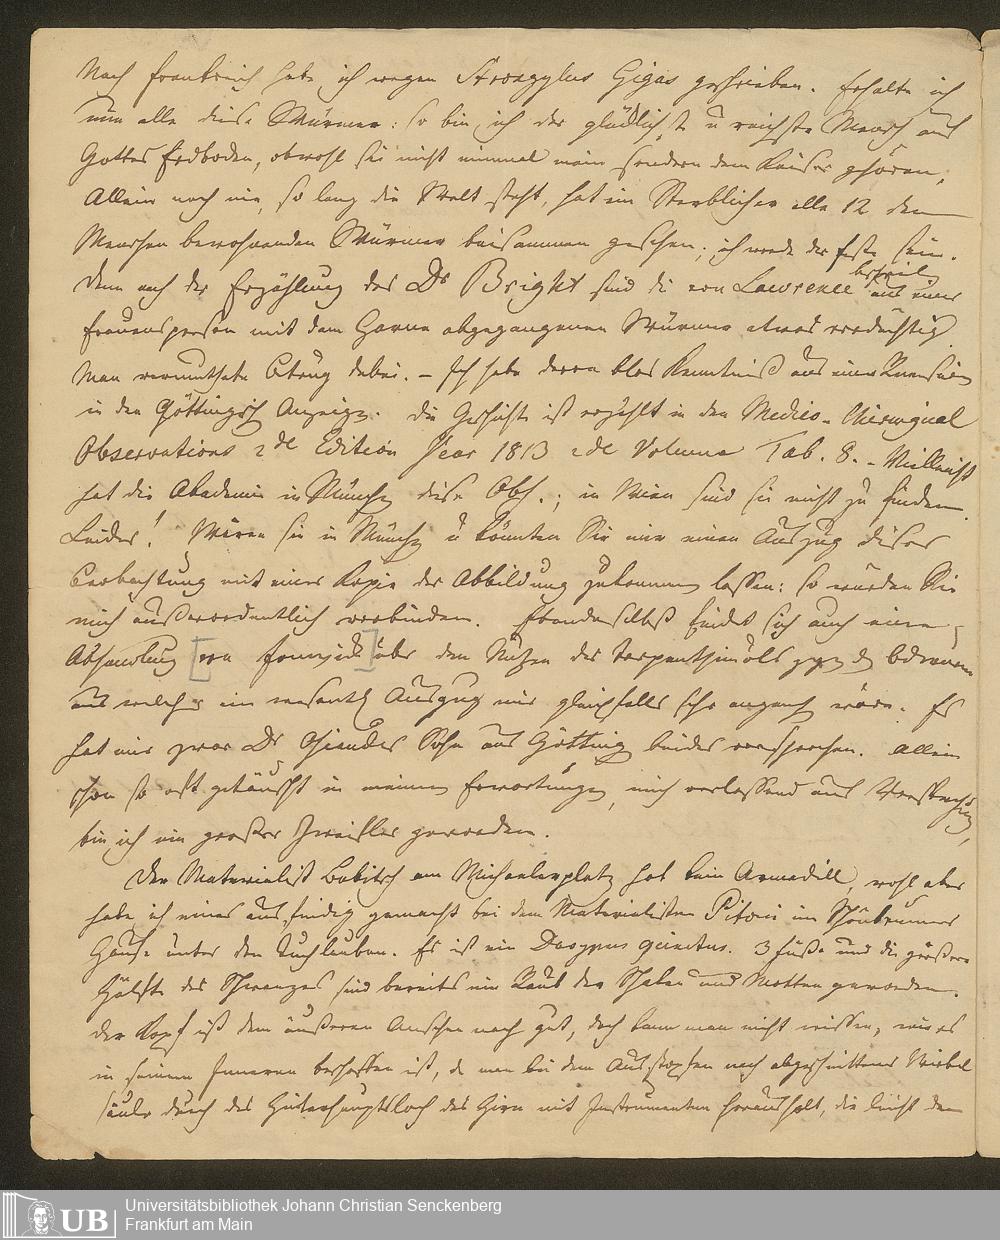 Nach Frankreich habe ich wegen Strongylus Gigas geschrieben. Erhalte ich
nun alle diese Würmer: so bin ich der glücklichste u reichste Mensch auf
Gottes Erdboden, obwohl sie nicht einmal mein sondern dem Kaiser gehören,
Allein noch nie, so lang die Welt steht, hat ein Sterblicher alle 12 den
Menschen bewohnenden Würmer beisammen gesehen; ich werde der Erste sein.
Denn nach der Erzählung des Dr Bright sind die von Lawrence aus einer
Frauensperson mit dem Harne abgegangenen Würmer etwas verdächtig.
Man vermuthete Betrug dabei. – Ich habe davon blos Kenntniß aus einer Recension
in den Götting. Anzeigen. Die Geschichte ist erzählt in den Medico-Chirurgical
Observations 2de Edition Year 1813 2de Volume Tab. 8. – Vielleicht
hat die Akademie in München diese Obs.; in Wien sind sie nicht zu finden.
Leider! Wären sie in München u könnten Sie mir einen Auszug dieser
Beobachtung mit einer Kopie der Abbildung zukommen lassen: so würden Sie
mich außerordentlich verbinden. Ebendaselbst findet sich auch eine
Abhandlung [von ] über den Nutzen des Terpenthinöls gegen den Bandwurm
aus welcher ein Auszug mir gleichfalls sehr angenehm wäre. Es
hat mir zwar Dr Osiander Sohn aus Göttingen beides versprochen. Allein
schon so oft getäuscht in meinen Erwartungen, mich verlassend auf Versprechungen,
bin ich ein großer Zweifler geworden.
Der Materialist Babitsch am Michaelerplatz hat kein Armadill, wohl aber
habe ich eines ausfindig gemacht bei dem Materialisten Pitoni im Schönbrunner
Hause unter den Tuchlauben. Es ist ein Dasypus 9cinctus. 3 Füße und die größere
Hälfte des Schwanzes sind bereits ein Raub der Schaben und Motten geworden.
Der Kopf ist dem äußeren Ansehen nach gut, doch kann man nicht wissen, wie es
in seinem Inneren beschaffen ist, da man bei dem Ausstopfen nach abgeschnittener Wirbel
säule durch das Hinterhauptsloch das Hirn mit Instrumenten herausholt, die leicht den
Universitätsbibliothek Johann Christian Senckenberg
Frankfurt am Main
UB